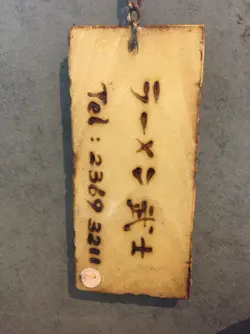 ラーメン武士
Tel：2369 3211